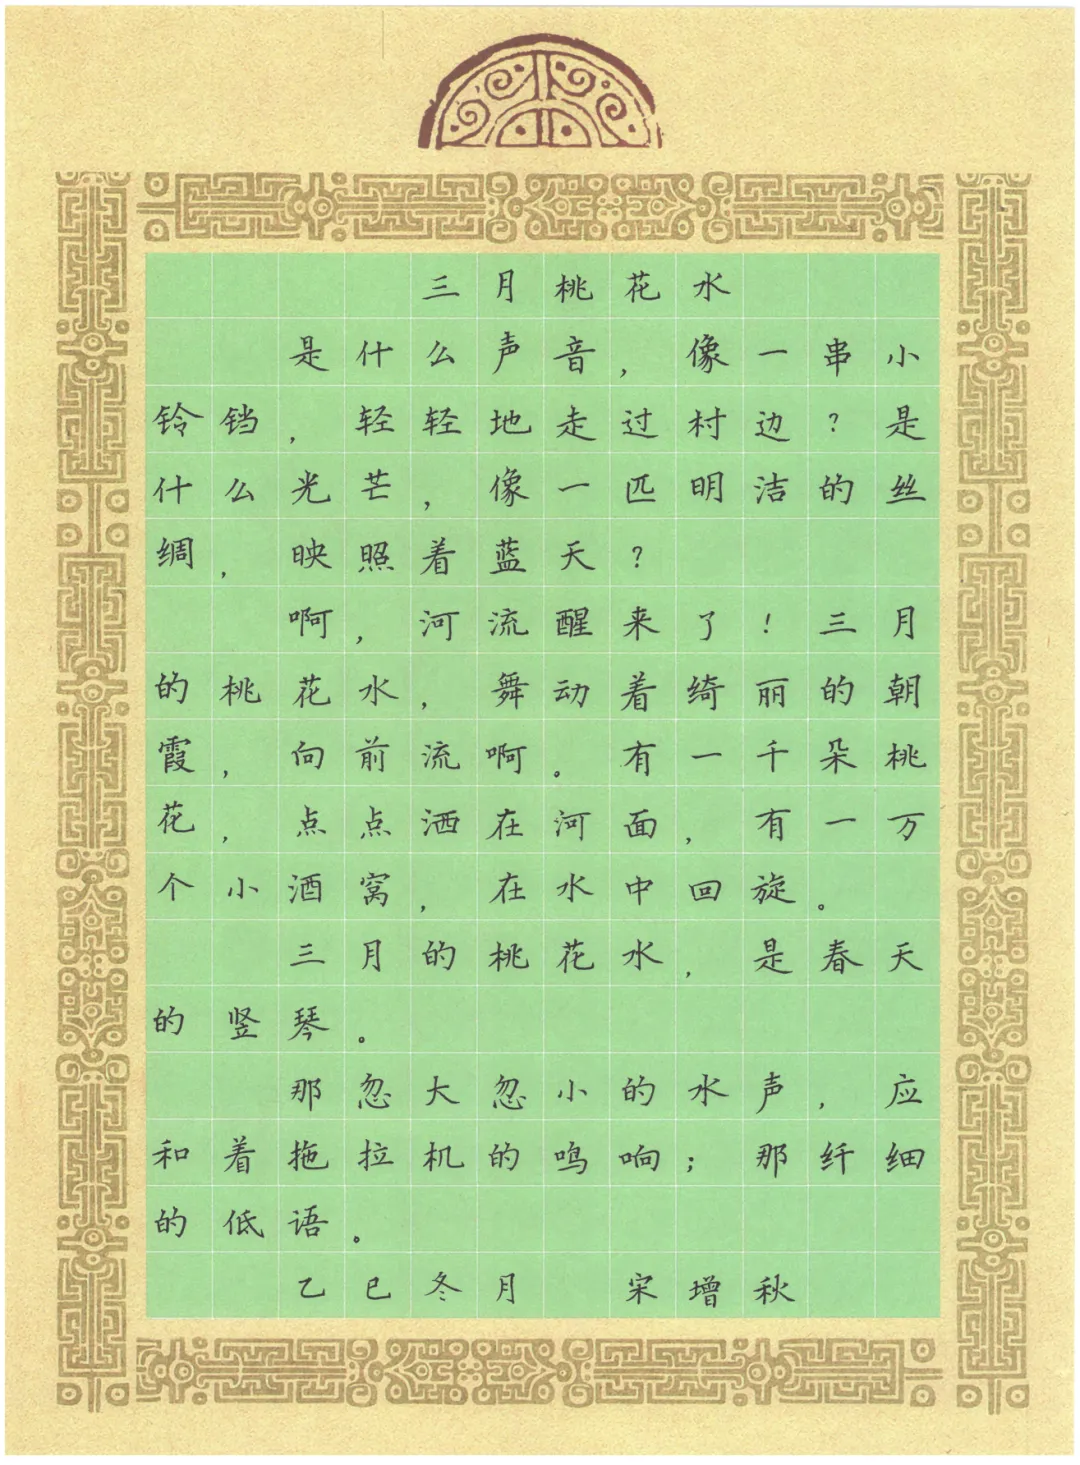 三月桃花水
是什么声音，像一串小
铃铛，轻轻地走过村边？是
什么光芒，像一匹明洁的丝
绸，映照着蓝天？
啊，河流醒来了！三月
的桃花水，舞动着绮丽的朝
霞，向前流啊。有一千朵桃
花，点点洒在河面，有一万
个小酒窝，在水中回旋。
三月的桃花水，是春天
的竖琴。
那忽大忽小的水声，应
和着拖拉机的鸣响；那纤细
的低语。
乙巳冬月 宋增秋